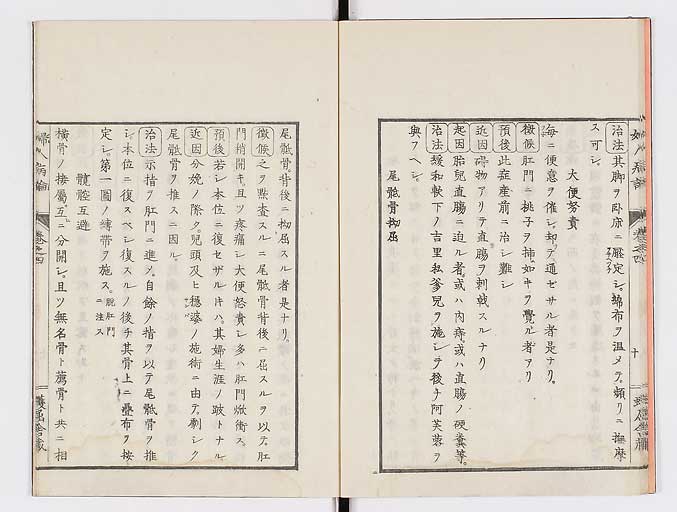 治法其脚ヲ臥床ニ壓定シ。綿布ヲ温メテ。頻リニ撫摩
ス可シ。
大便努責
毎ニ便意ヲ催シ。却テ通セサル者是ナリ。
徴候肛門ニ桃子ヲ挿ム如キヲ覺ル者アリ
預後此症産前ニ治シ難シ
近因碍物アリテ直膓ヲ刺戟スルナリ
起因胎兒直膓ニ迫ル者。或ハ内痔。或ハ直膓ノ硬糞等。
治法緩和軟下ノ吉里私爹兒ヲ施シテ後チ阿芙蓉ヲ
與フヘシ。
尾骶骨拗屈
尾骶骨。背後ニ拗屈スル者是ナリ。
徴候之ヲ點査スルニ尾骶骨背後ニ屈スルヲ以テ肛
門稍開キ。且ツ疼痛シ大便努責シ多ハ肛門焮衝ス。
預後若シ本位ニ復セザル片ハ。其婦生涯ノ跛トナル
近因分娩ノ際ク。兒頭及ヒ穩婆ノ施術ニ由テ。劇シク
尾骶骨ヲ推スニ因ル。
治法示指ヲ肛門ニ進メ。自餘ノ指ヲ以テ尾骶骨ヲ推
シ本位ニ復スベシ復スルノ後チ其骨上ニ疊布ヲ按
定シ。第一圖ノ縛帶ヲ施ス。脱肛門ニ注ス
髖骨互遊
横骨ノ接屬。互ニ分開シ。且ツ無名骨ト薦骨ト共ニ相
婦人病論
卷之四